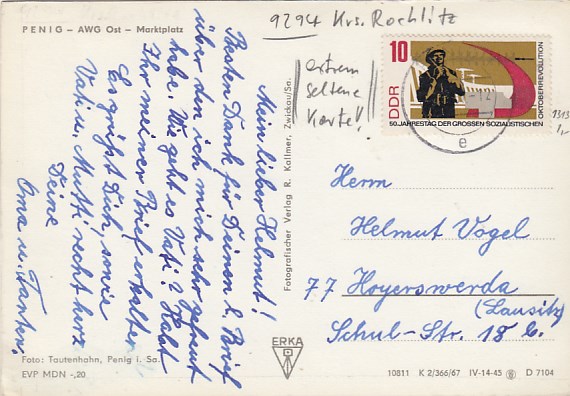 PENIG – AWG Ost – Marktplatz
9294 Krs. Rochlitz
extrem
seltene
Karte!
10
DDR
50. JAHRESTAG DER GROSSEN SOZIALISTISCHEN
OKTOBERREVOLUTION
1313
1,-
e
Mein lieber Helmut!
Besten Dank für Deinen l. Brief
über den ich mich sehr gefreut
habe. Wie geht es Vati? Habt
Ihr meinen Brief erhalten
Es grüßt Dich, sowie
Vati u. Mutti recht herz
Deine
Oma u. Tanten.
Fotografischer Verlag R. Kallmer, Zwickau/Sa.
Herrn
Helmut Vogel
77 Hoyerswerda
(Lausitz)
Schul-Str. 18 b.
ERKA
Foto: Tautenhahn, Penig i. Sa.
EVP MDN -,20
10811 K 2/366/67 IV-14-45 D 7104